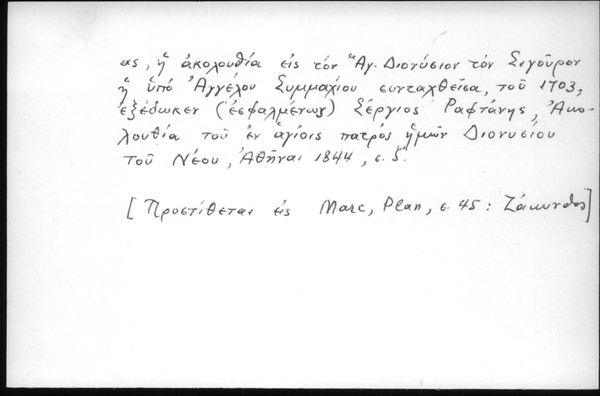 ας, ἡ ἀκολουθία εἰς τόν Ἅγ. Διονύσιον τόν Σιγοῦρον
ἡ ὑπό Ἀγγέλου Συμμαχίου συνταχθεῖσα, τοῦ 1703,
ἐξέδωκεν (ἐσφαλμένως) Σέργιος Ραφτάνης, Ἀκο-
λουθία τοῦ ἐν ἁγίοις πατρός ἡμῶν Διονυσίου
τοῦ Νέου, Ἀθῆναι 1844, σ. 5.
[Προστίθεται εἰς Marc, Plan, σ. 45: Ζάκυνθος]